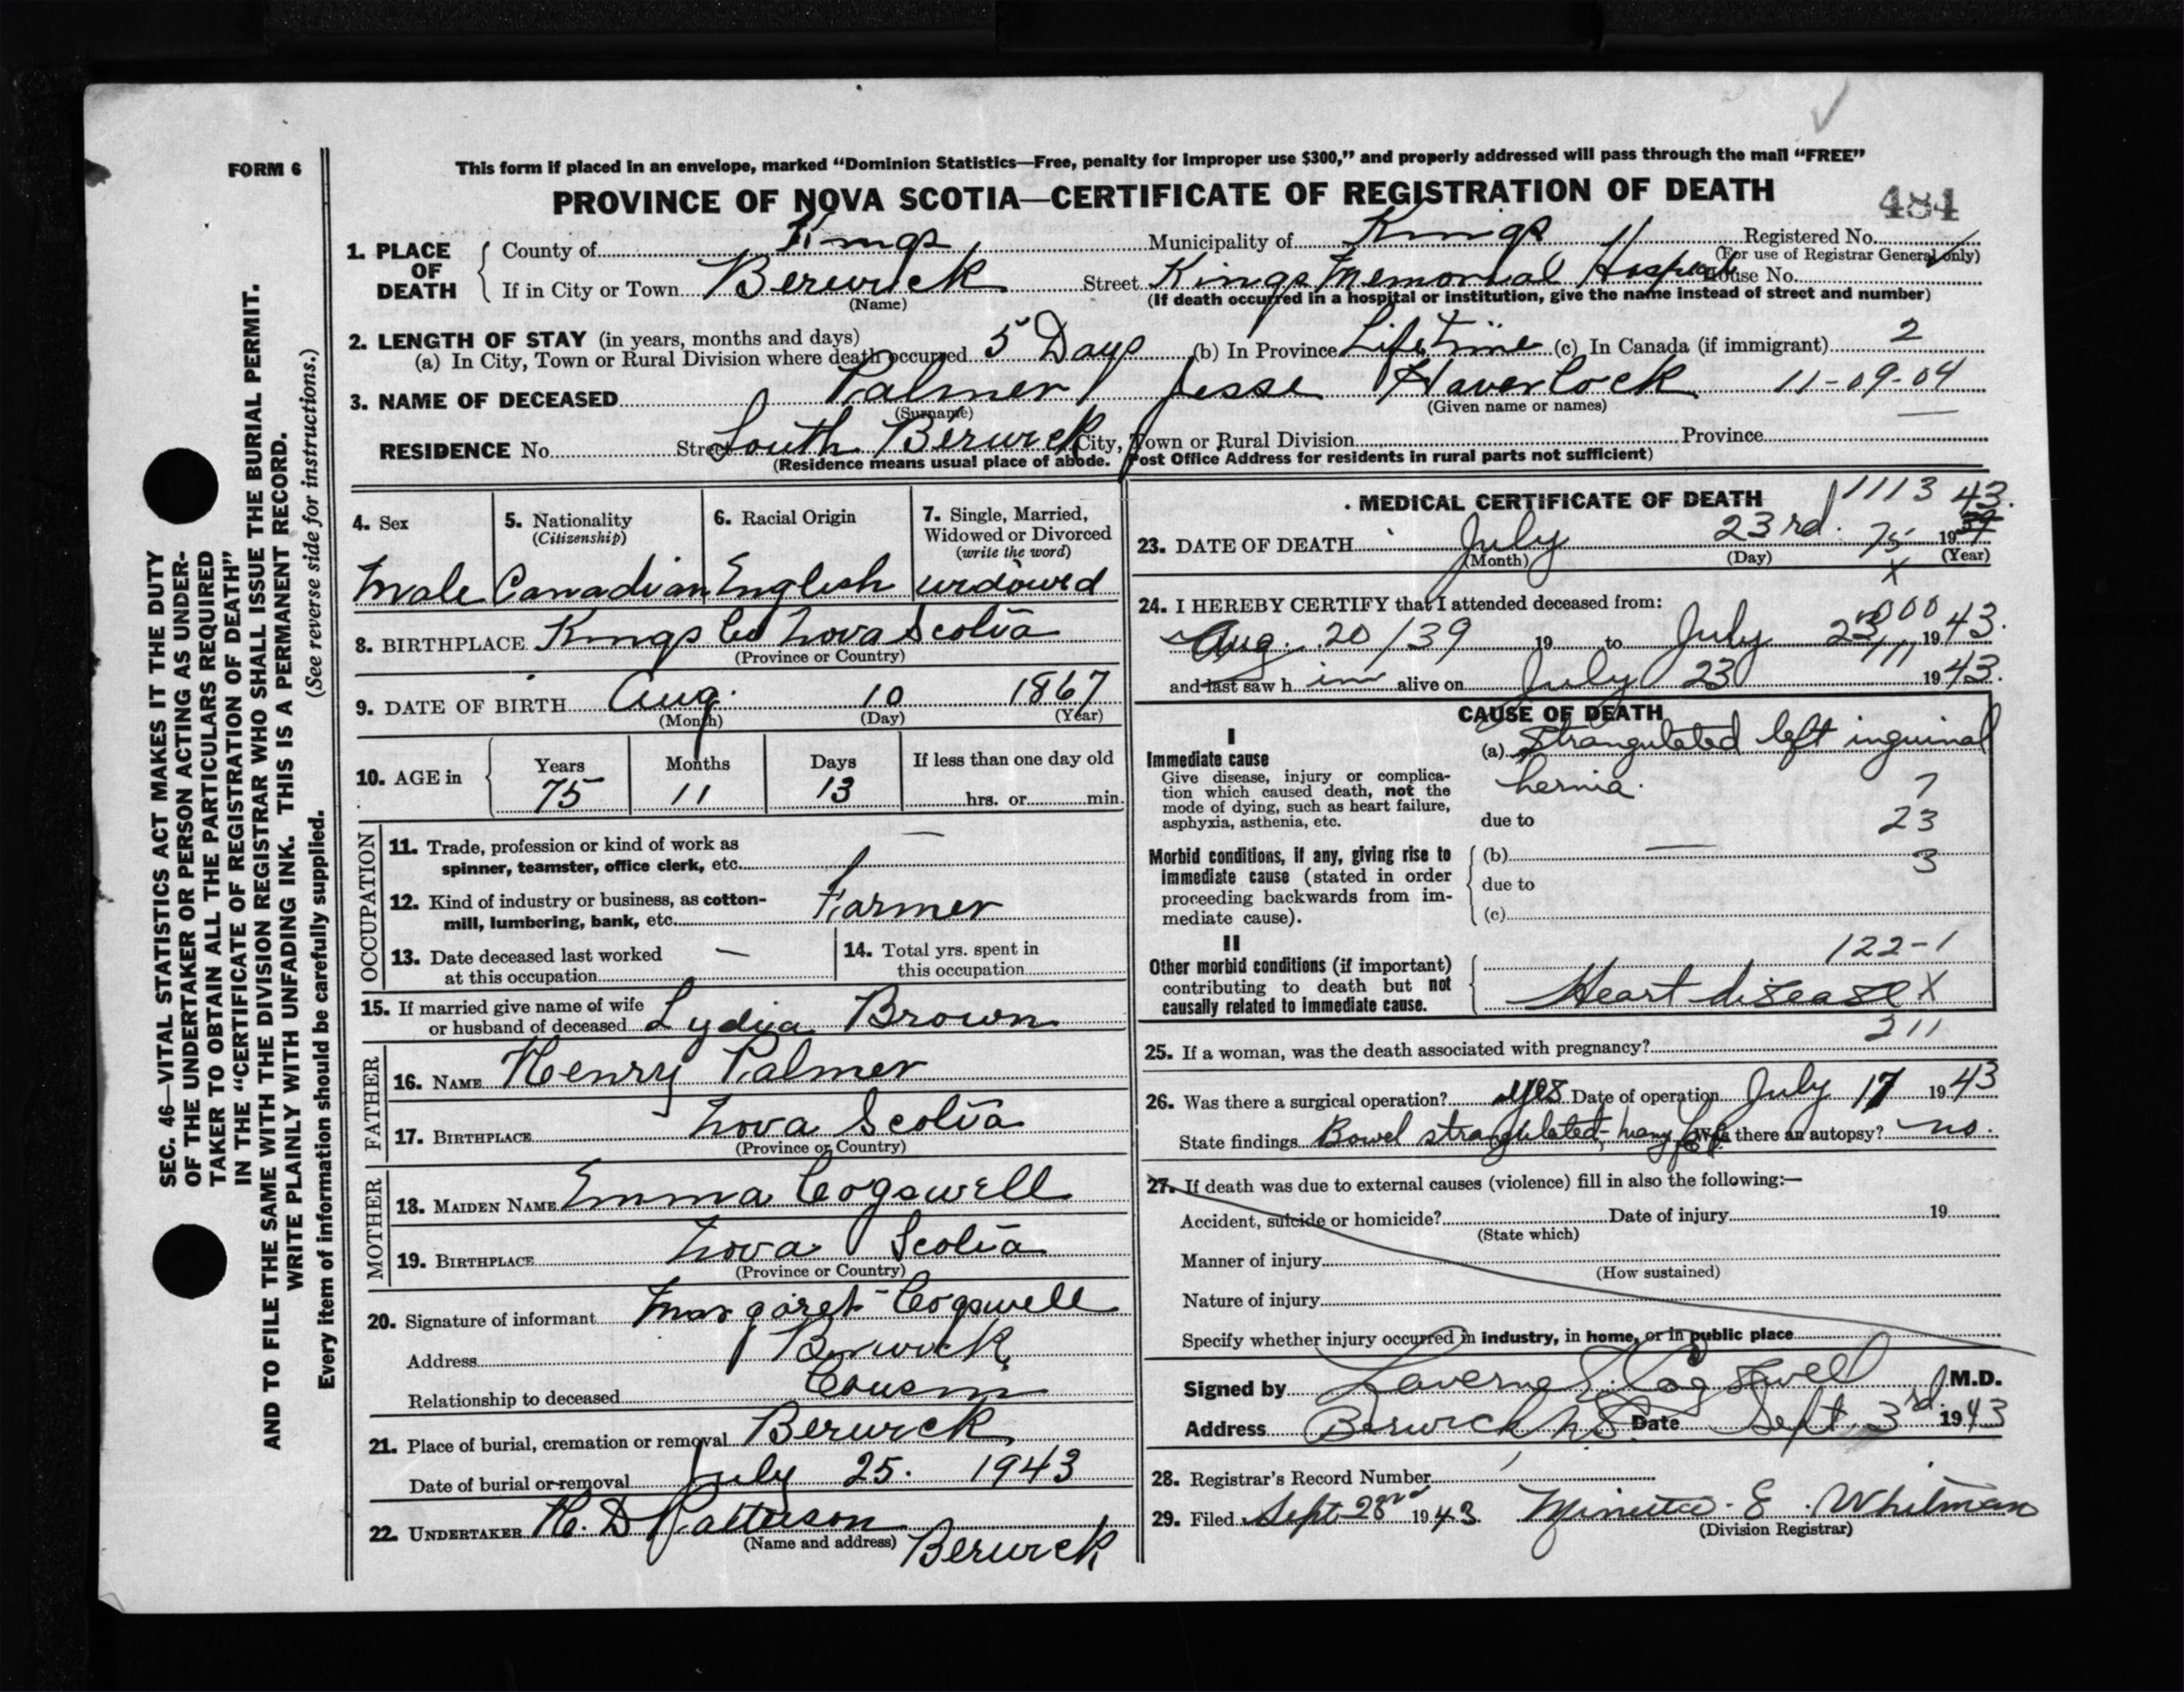 FORM 6
This form if placed in an envelope, marked "Dominion Statistics—Free, penalty for improper use $300," and properly addressed will pass through the mail "FREE"
PROVINCE OF NOVA SCOTIA—CERTIFICATE OF REGISTRATION OF DEATH
484
1. PLACE OF DEATH
County of Kings Municipality of Kings Registered No.
(For use of Registrar General only)
If in City or Town Berwick Street Kings Memorial Hospital House No.
(Name) (If death occurred in a hospital or institution, give the name instead of street and number)
2. LENGTH OF STAY (in years, months and days)
(a) In City, Town or Rural Division where death occurred 5 Days (b) In Province Lifetime (c) In Canada (if immigrant) 2
3. NAME OF DECEASED Palmer Jesse Haverlock 11-09-04
(Surname) (Given name or names)
RESIDENCE No. Street South Berwick City, Town or Rural Division Province
(Residence means usual place of abode. Post Office Address for residents in rural parts not sufficient)
4. Sex
Male
5. Nationality
(Citizenship)
Canadian
6. Racial Origin
English
7. Single, Married, Widowed or Divorced
(write the word)
widowd
8. BIRTHPLACE Kings Co Nova Scotia
(Province or Country)
9. DATE OF BIRTH Aug. 10 1867
(Month) (Day) (Year)
10. AGE in
Years Months Days If less than one day old
75 11 13 hrs. or min.
OCCUPATION
11. Trade, profession or kind of work as
spinner, teamster, office clerk, etc. —
12. Kind of industry or business, as cotton-
mill, lumbering, bank, etc. Farmer
13. Date deceased last worked
at this occupation —
14. Total yrs. spent in
this occupation
15. If married give name of wife
or husband of deceased Lydia Brown
FATHER
16. NAME Henry Palmer
17. BIRTHPLACE Nova Scotia
(Province or Country)
MOTHER
18. MAIDEN NAME Emma Cogswell
19. BIRTHPLACE Nova Scotia
(Province or Country)
20. Signature of informant Margaret Cogswell
Address Berwick
Relationship to deceased Cousin
21. Place of burial, cremation or removal Berwick
Date of burial or removal July 25. 1943
22. UNDERTAKER H. D Patterson
(Name and address) Berwick
MEDICAL CERTIFICATE OF DEATH 1113
23. DATE OF DEATH July 23rd. 75 19 39 43.
(Month) (Day) (Year)
X
24. I HEREBY CERTIFY that I attended deceased from:
000
Aug. 20/39 19 to July 23, 1943.
111
and last saw h im alive on July 23 1943.
CAUSE OF DEATH
I
Immediate cause
Give disease, injury or complica-
tion which caused death, not the
mode of dying, such as heart failure,
asphyxia, asthenia, etc.
(a) Strangulated left inguinal
hernia. 7
due to 23
Morbid conditions, if any, giving rise to
immediate cause (stated in order
proceeding backwards from im-
mediate cause).
(b) — 3
due to
(c)
II
Other morbid conditions (if important)
contributing to death but not
causally related to immediate cause.
122-1
Heart disease X
211
25. If a woman, was the death associated with pregnancy?
26. Was there a surgical operation? yes Date of operation July 17 1943
State findings Bowel strangulated, Was there an autopsy? no.
27. If death was due to external causes (violence) fill in also the following:—
Accident, suicide or homicide? Date of injury 19
(State which)
Manner of injury
(How sustained)
Nature of injury
Specify whether injury occurred in industry, in home, or in public place
Signed by Laverne Cogswell M.D.
Address Berwick N.S. Date Sept. 3rd 1943
28. Registrar's Record Number
29. Filed Sept 1943 E. Whitman
(Division Registrar)
SEC. 46—VITAL STATISTICS ACT MAKES IT THE DUTY
OF THE UNDERTAKER OR PERSON ACTING AS UNDER-
TAKER TO OBTAIN ALL THE PARTICULARS REQUIRED
IN THE "CERTIFICATE OF REGISTRATION OF DEATH"
AND TO FILE THE SAME WITH THE DIVISION REGISTRAR WHO SHALL ISSUE THE BURIAL PERMIT.
WRITE PLAINLY WITH UNFADING INK. THIS IS A PERMANENT RECORD.
Every item of information should be carefully supplied. (See reverse side for instructions.)